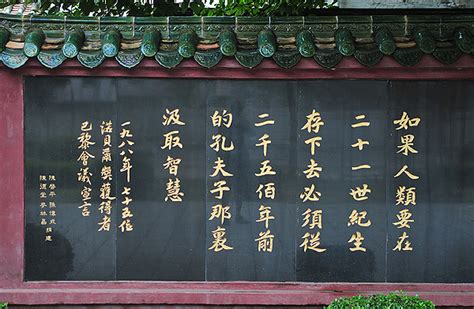 如果人類要在
二十一世紀生
存下去必須從
二千五佰年前
的孔夫子那裏
汲取智慧
一九八八年 七十五位
諾貝爾獎獲得者
巴黎會議宣言